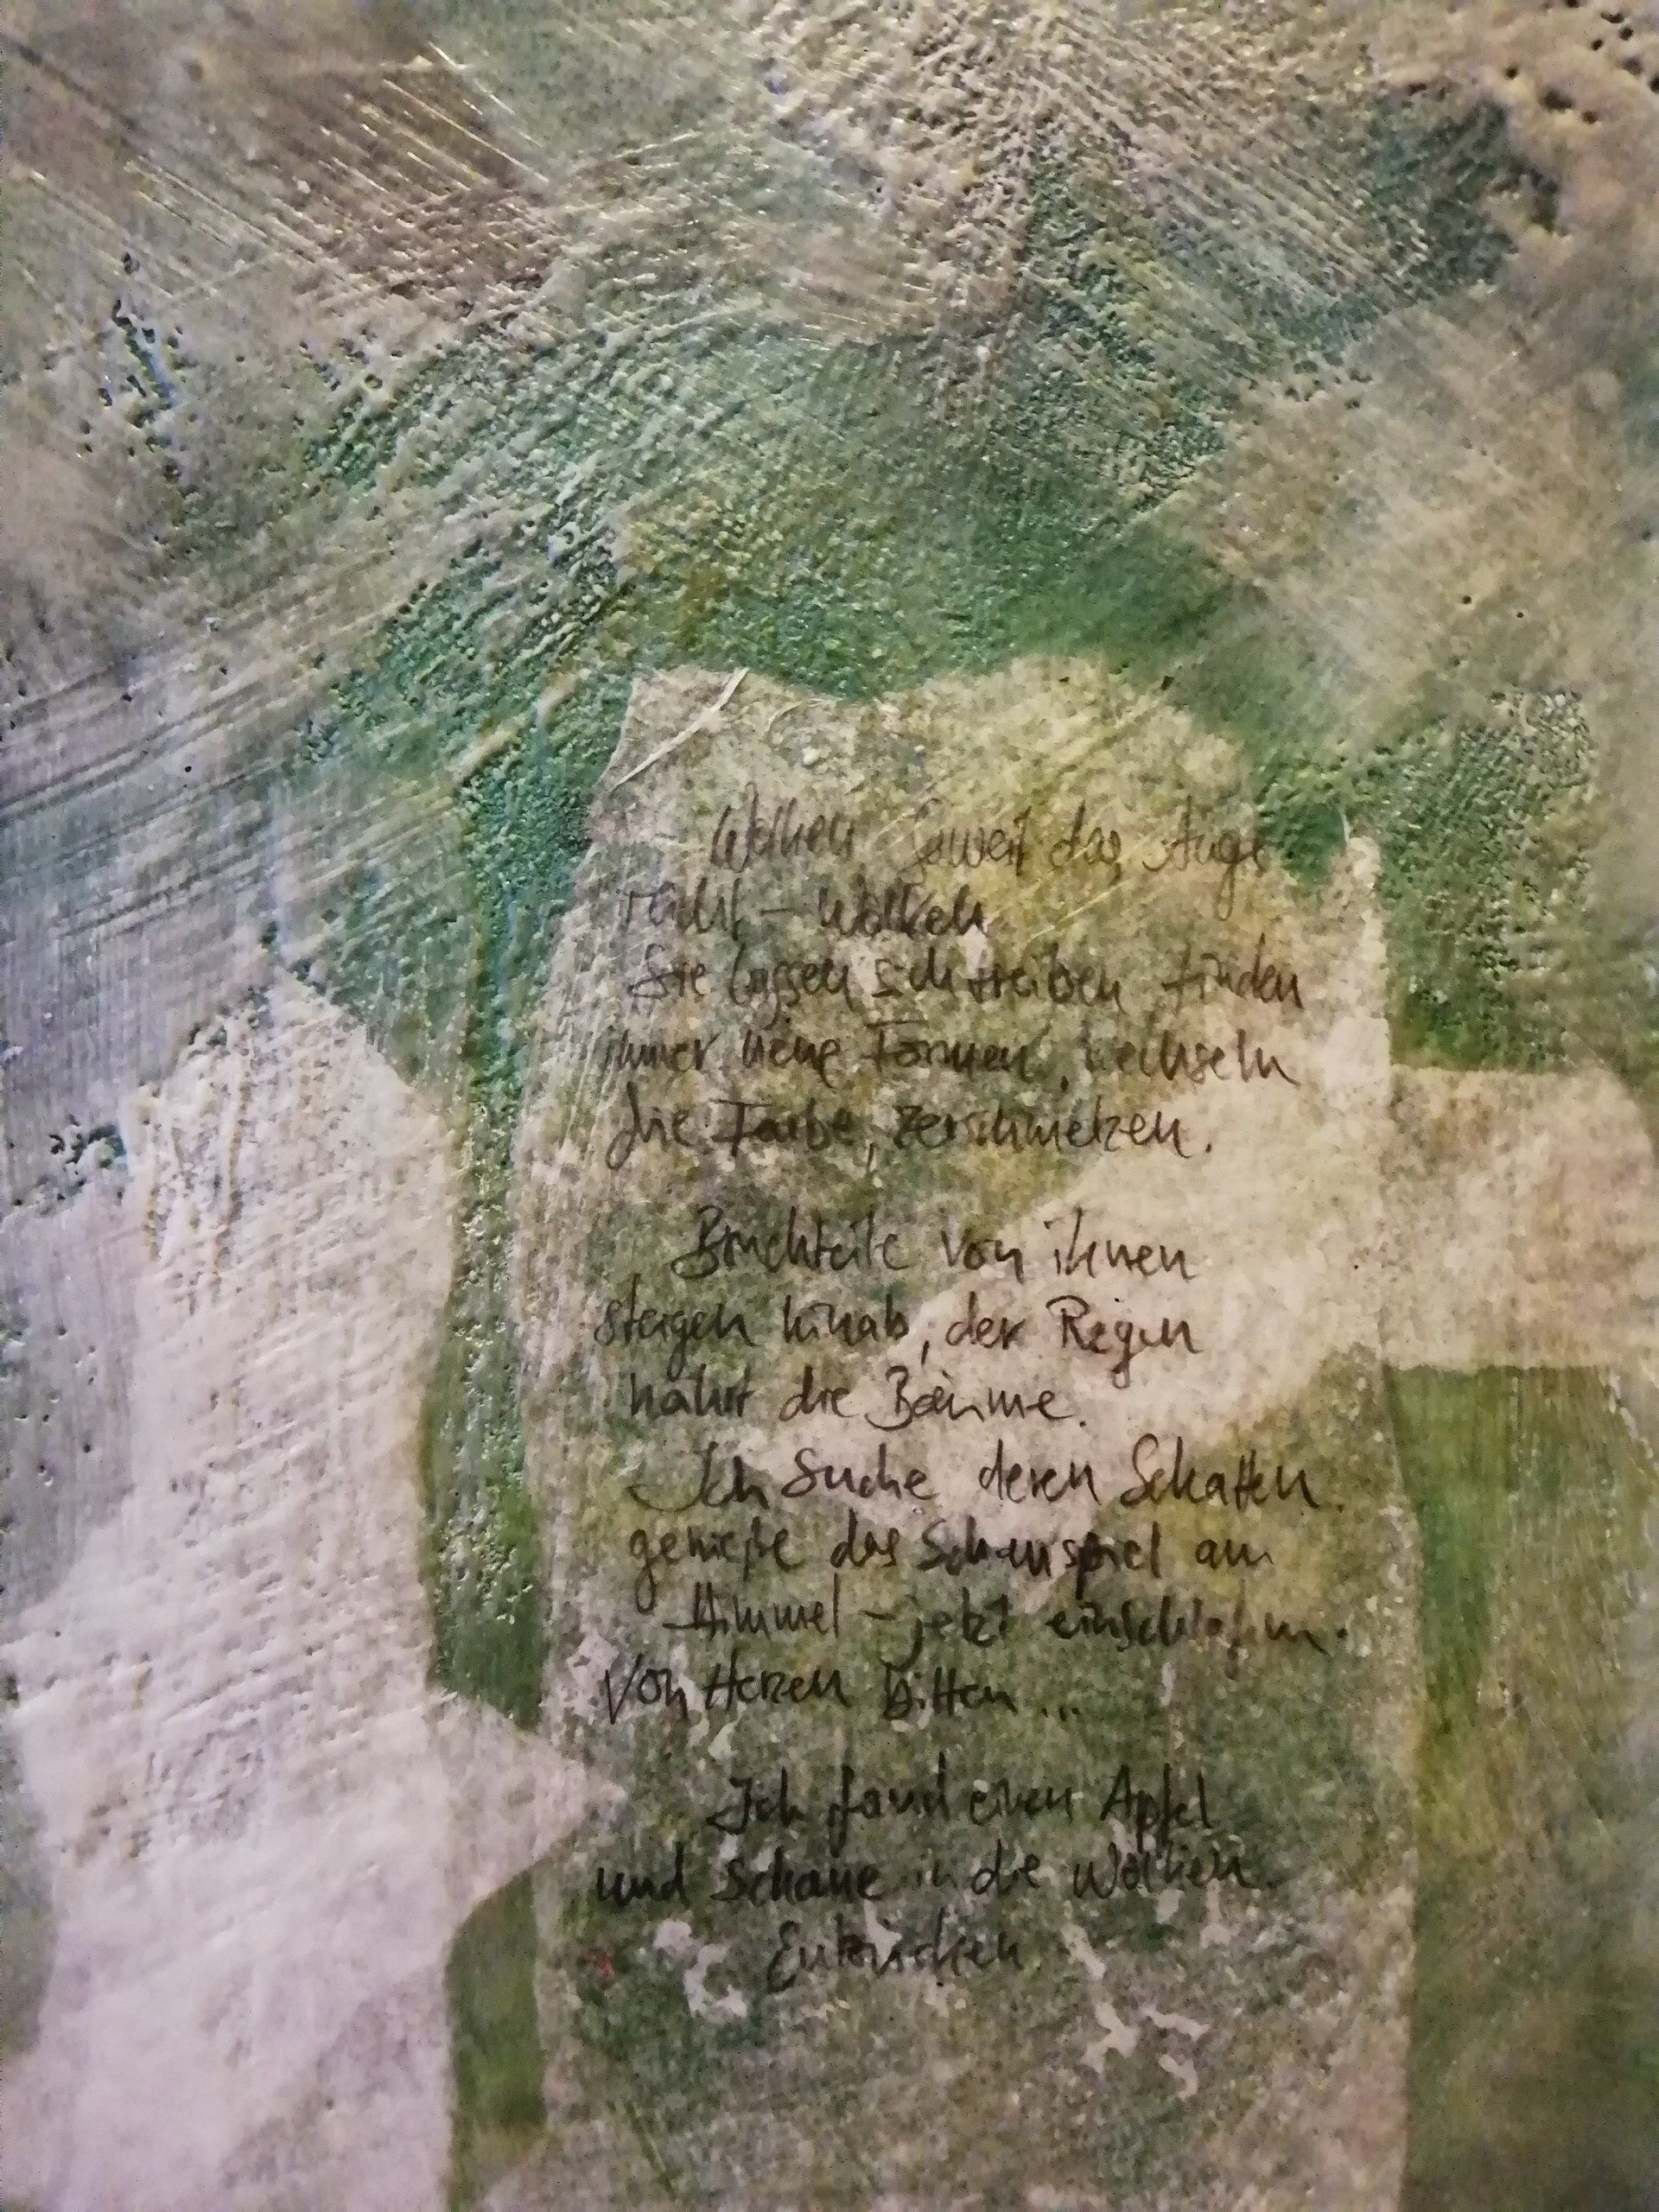 Wolken soweit das Auge
reicht – Wolken
Sie lassen sich treiben finden
immer neue Formen, wechseln
die Farbe, zerschmelzen.
Bruchteile von ihnen
steigen hinab, der Regen
nährt die Bäume.
Ich suche deren Schatten.
genieße das Schauspiel am
Himmel – jetzt einschlafen.
Von Herzen bitten ...
Ich fand einen Apfel
und schaue in die Wolken.